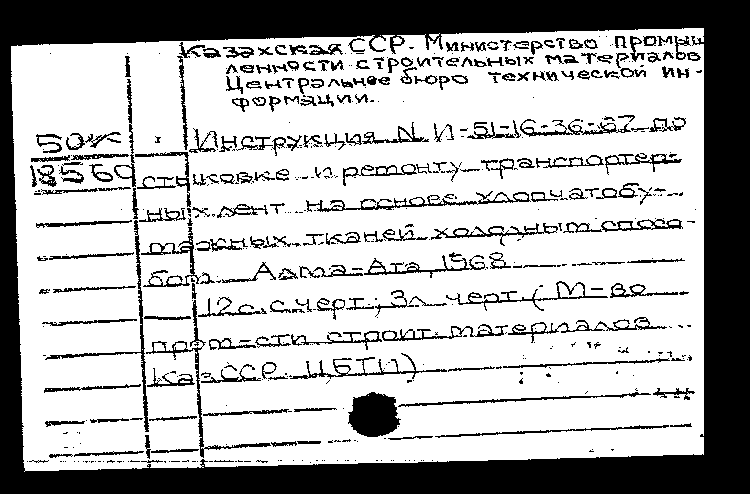 Казахская ССР. Министерство промыш
ленности строительных материалов
Центральное бюро технической ин-
формации.
50к Инструкция N И-51-16-36-67 по
18560 стыковке и ремонту транспортер-
ных лент на основе хлопчатобу-
мажных тканей холодным спосо-
бом. Алма-Ата, 1968
12с. с черт.; 3л. черт. (М-во
пром-сти строит. материалов
КазССР. ЦБТИ)